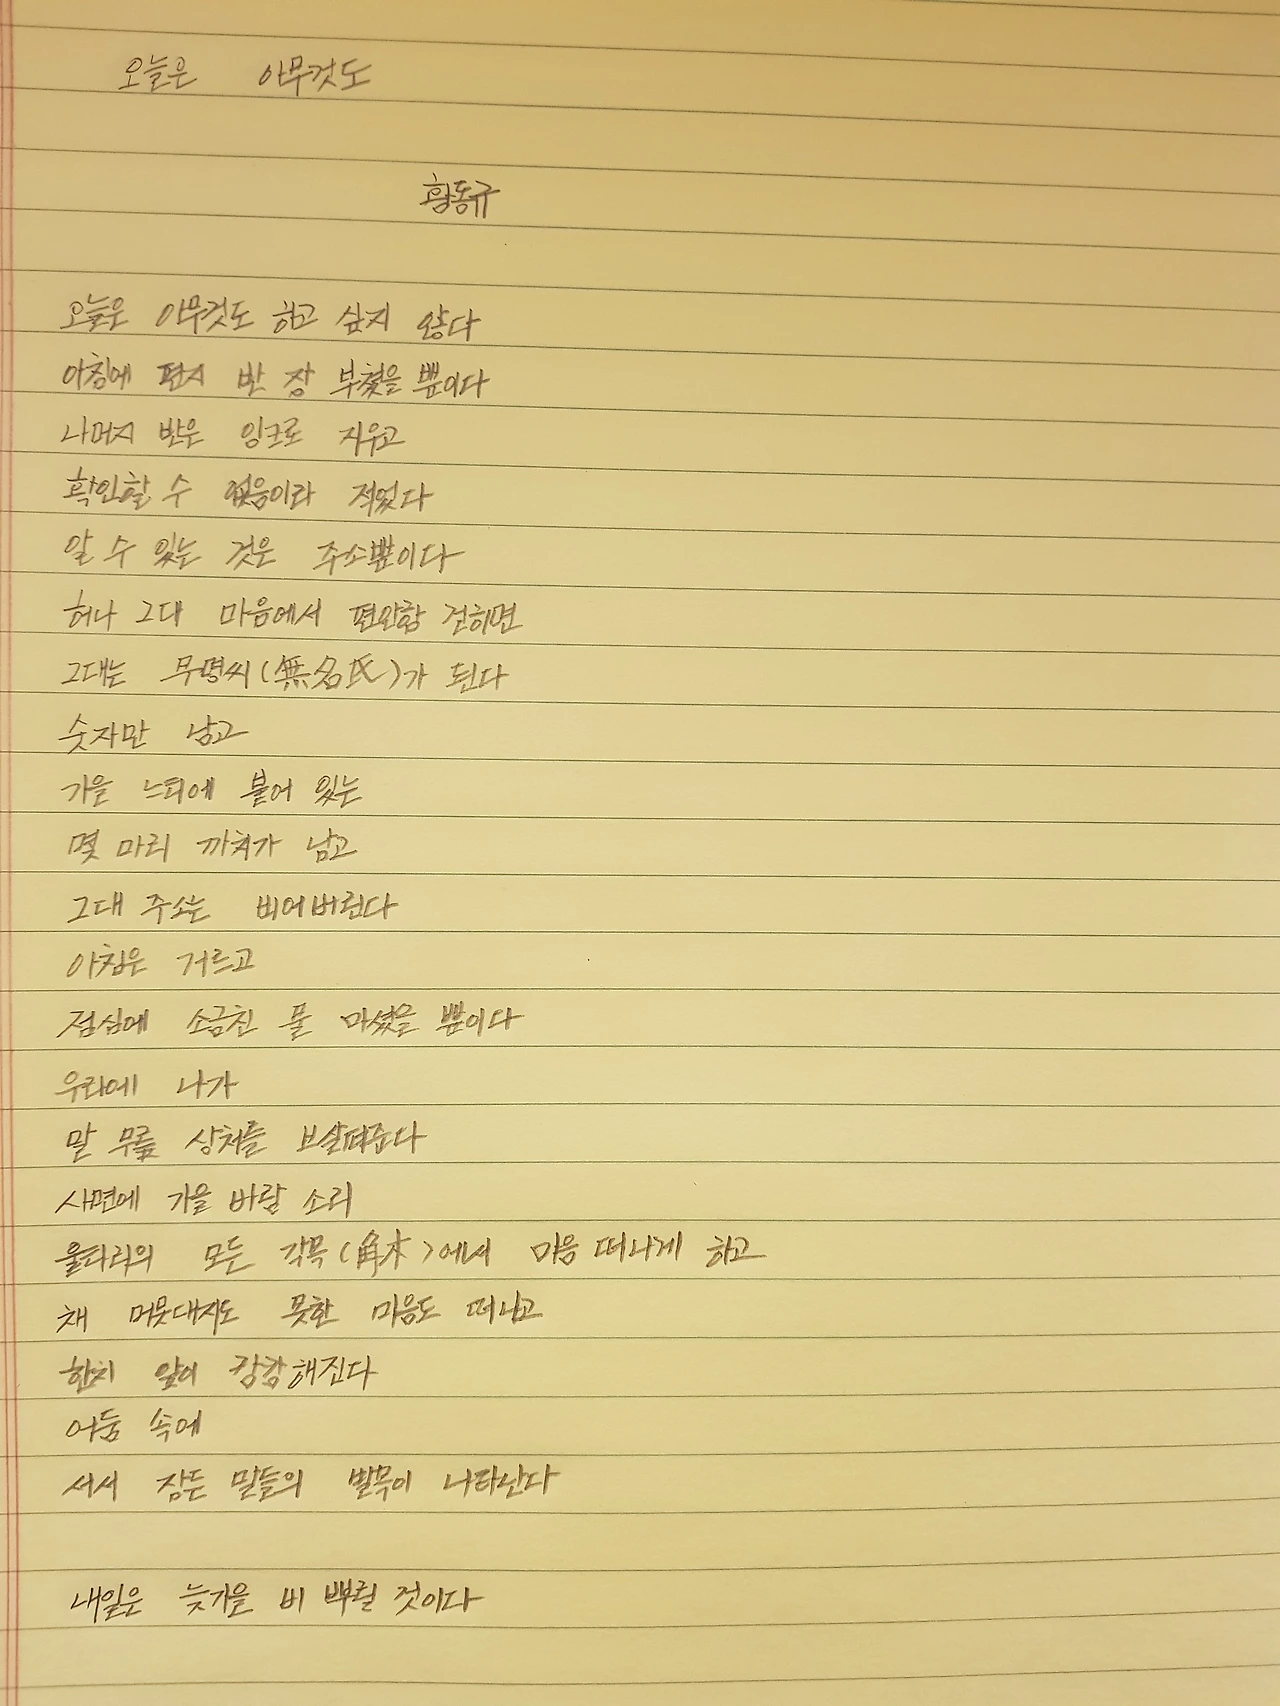 오늘은 아무것도
황동규
오늘은 아무것도 하고 싶지 않다
아침에 편지 반 장 부쳤을 뿐이다
나머지 반은 잉크로 지우고
확인할 수 없음이라 적었다
알 수 있는 것은 주소뿐이다
허나 그대 마음에서 편안함 걷히면
그대는 무명씨(無名氏)가 된다
숫자만 남고
가을 느티에 붙어 있는
몇 마리 까치가 남고
그대 주소는 비어버린다
아침은 거르고
점심에 소금친 물 마셨을 뿐이다
우리에 나가
말 무릎 상처를 보살펴준다
사면에 가을 바람 소리
울타리의 모든 각목(角木)에서 마음 떠나게 하고
채 머뭇대지도 못한 마음도 떠나고
한치 앞이 캄캄해진다
어둠 속에
서서 잠든 말들의 발목이 나타난다
내일은 늦가을 비 뿌릴 것이다